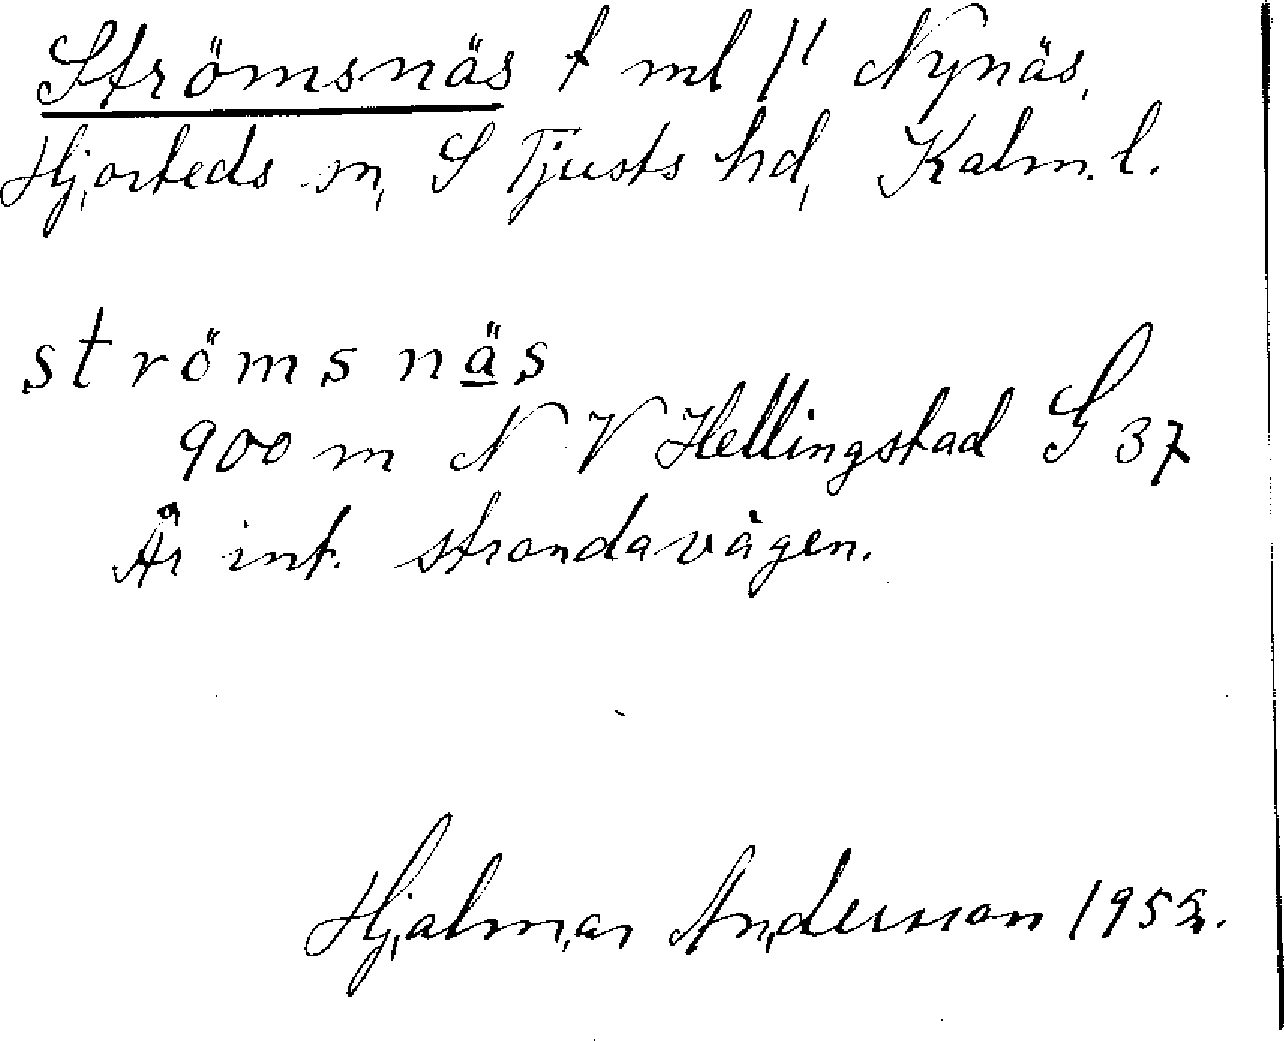 Strömsnäs t ml 1/1 Nynäs,
Hjorteds sn, S Tjusts hd, Kalm. l.
strömsnäs
900 m N V Hellingstad G 37
Är int. strandavägen.
Hjalmar Andersson 1952.